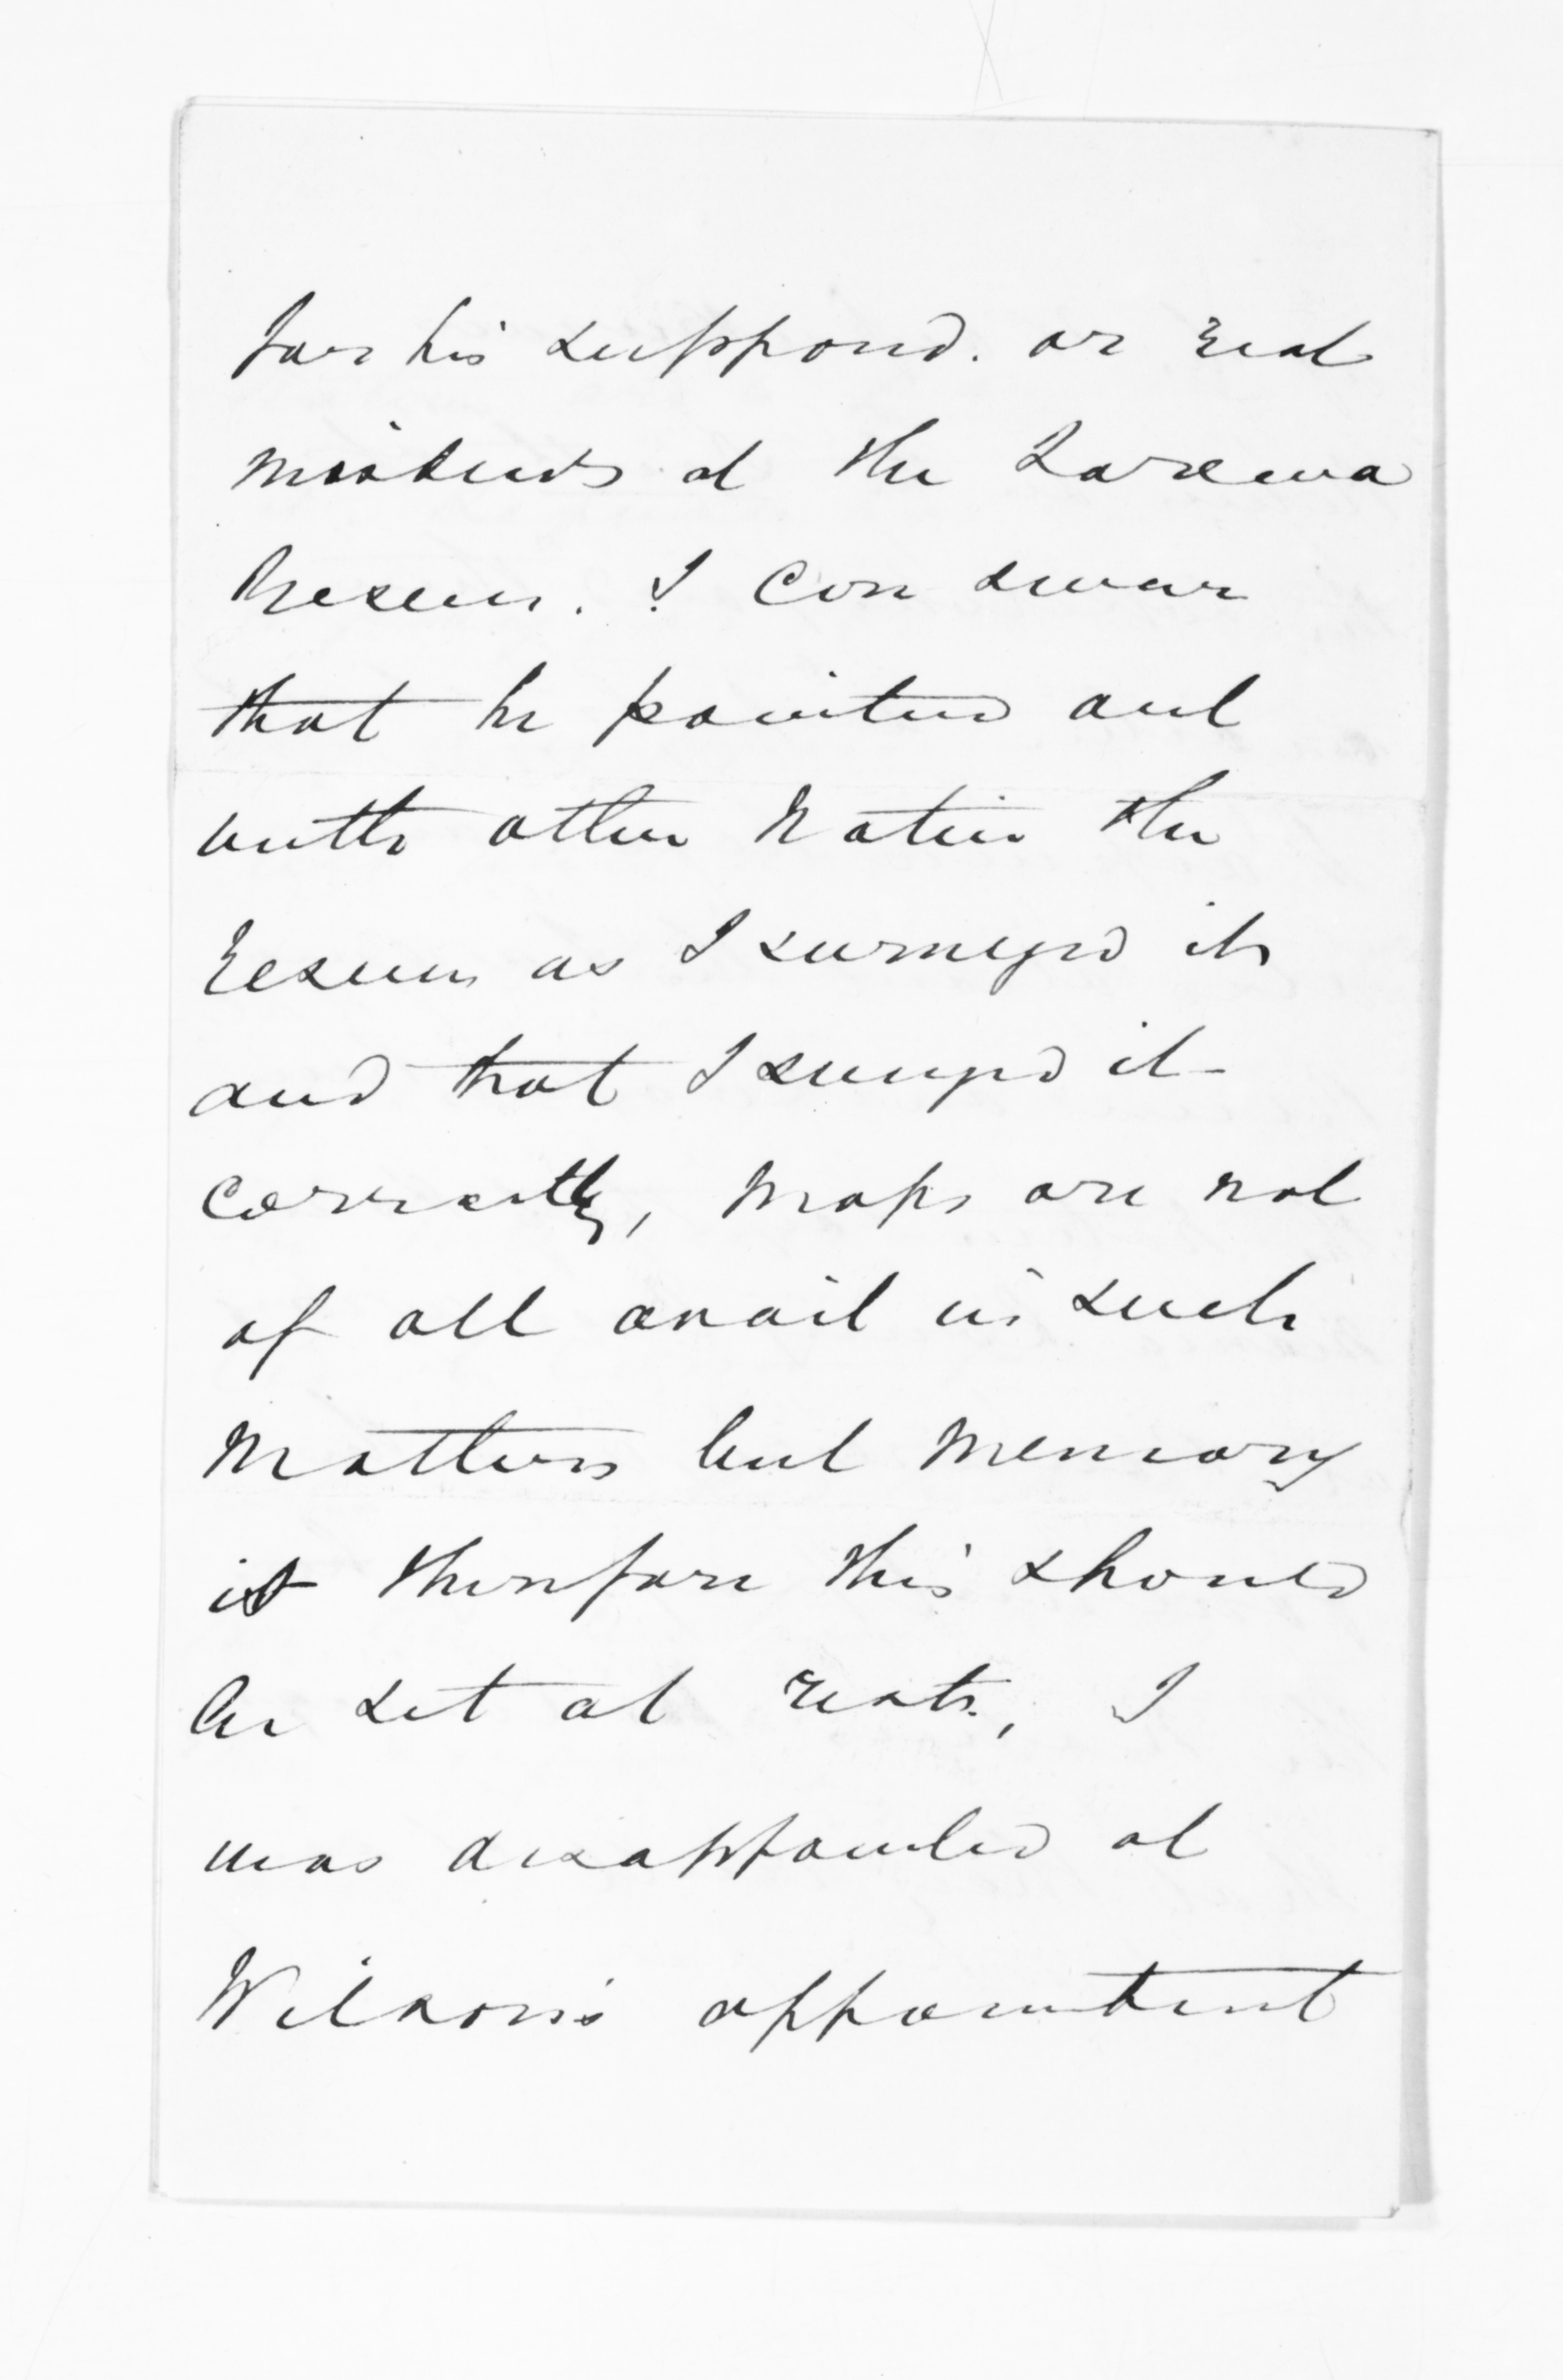 for his supposed. or real
misdeeds at the Tarewa
Reserve. I can swear
that he pointed out
with other Natives the
reserve as I surveyed it
and that I surveyed it
correctly, Maps are not
of all avail in such
Matters but memory
is therefore this should
be set at rest, I
was disappointed at
Wilson's appointment